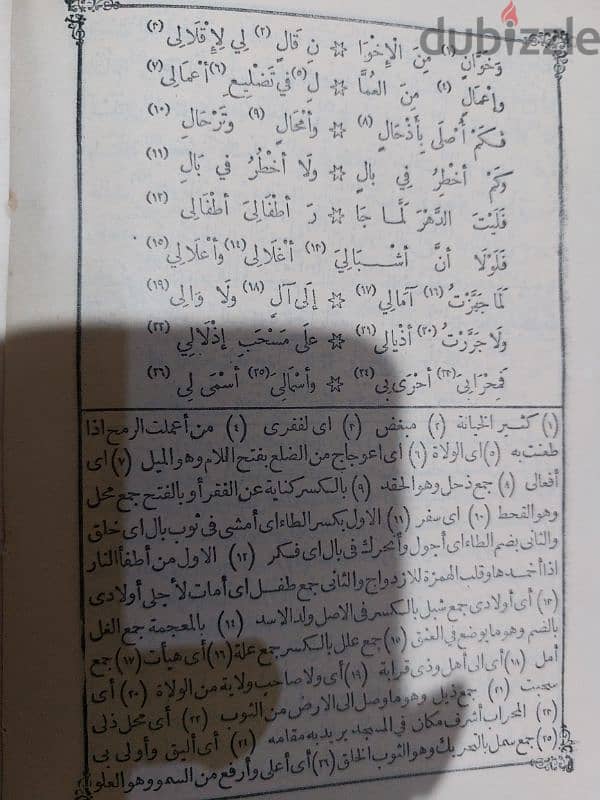 dubizzle
وَخَوَّانٍ (١) مِنَ الْإِخْوَا ☆ نِ قَالٍ (٢) لِي لِإِقْلَالِي (٣)
وَإِعْمَالٍ (٤) مِنَ الْعُمَّا ☆ لِ (٥) فِي تَضْلِيعِ (٦) أَعْمَالِي (٧)
فَكَمْ أُصْلَى بِأَذْحَالٍ (٨) ☆ وَأَمْحَالٍ (٩) وَتَرْحَالِ (١٠)
وَكَمْ أَخْطِرُ فِي بَالٍ ☆ وَلَا أَخْطُرُ فِي بَالِ (١١)
فَلَيْتَ الدَّهْرَ لَمَّا جَا ☆ رَ أَطْفَالِيَ أَطْفَالِي (١٢)
فَلَوْلَا أَنَّ أَشْبَالِيَ (١٣) أَغْلَالِي (١٤) وَأَعْلَالِي (١٥)
لَمَا جَهَّزْتُ (١٦) آمَالِي (١٧) ☆ إِلَى آلٍ (١٨) وَلَا وَالِي (١٩)
وَلَا جَرَّرْتُ (٢٠) أَذْيَالِي (٢١) ☆ عَلَى مَسْحَبِ إِذْلَالِي (٢٢)
فَمِحْرَابِيَ (٢٣) أَحْرَى بِي (٢٤) ☆ وَأَسْمَالِيَ (٢٥) أَسْمَى لِي (٢٦)
(١) كثير الخيانة (٢) مبغض (٣) اى لفقرى (٤) من أعملت الرمح اذا
طعنت به (٥) اى الولاة (٦) أى اعوجاج من الضلع بفتح اللام وهو الميل (٧) اى
أفعالى (٨) جمع ذحل وهو الحقد (٩) بالكسر كناية عن الفقر أو بالفتح جمع محل
وهو القحط (١٠) اى سفر (١١) الاول بكسر الطاء اى أمشى فى ثوب بال اى خلق
والثانى بضم الطاء اى أجول وأتحرك فى بال اى فكر (١٢) الاول من أطفأ النار
اذا أخمدها وقلب الهمزة للازدواج والثانى جمع طفل اى أمات لأجلى أولادى
(١٣) أى أولادى جمع شبل بالكسر فى الاصل ولد الاسد (١٤) بالمعجمة جمع الغل
بالضم وهو ما يوضع فى العنق (١٥) جمع علل بالكسر جمع علة (١٦) أى هيأت (١٧) جمع
أمل (١٨) أى الى أهل وذى قرابة (١٩) أى ولا صاحب ولاية من الولاة (٢٠) أى
سحبت (٢١) جمع ذيل وهو ما وصل الى الارض من الثوب (٢٢) أى محل ذلى
(٢٣) المحراب أشرف مكان فى المسجد يريد به مقامه (٢٤) أى أليق وأولى بى
(٢٥) جمع سمل بالتحريك وهو الثوب الخلق (٢٦) أى أعلى وأرفع من السمو وهو العلو